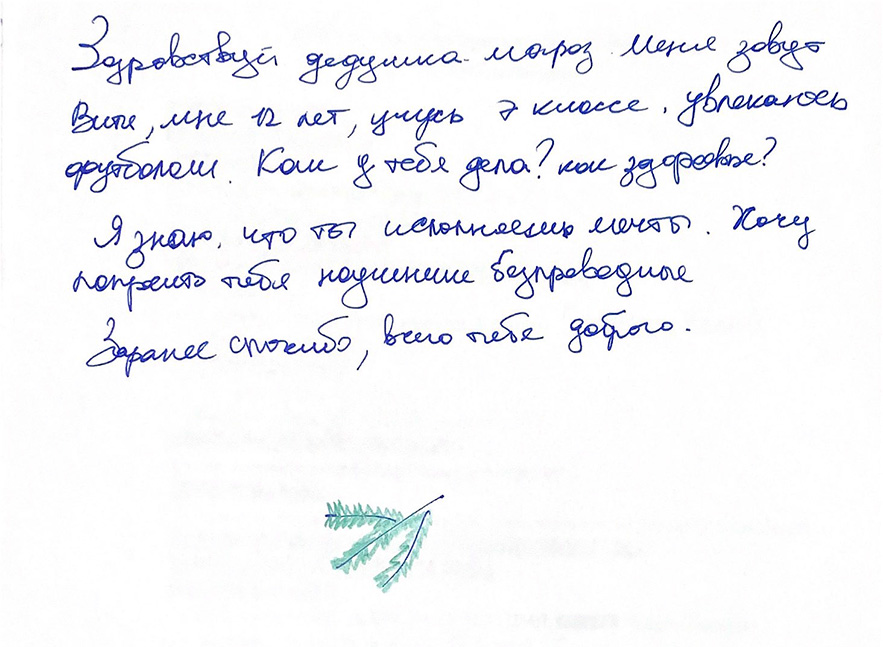 Здравствуй дедушка мороз. Меня зовут
Витя, мне 12 лет, учусь 7 классе. увлекаюсь
футболом. Как у тебя дела? как здоровье?
Я знаю, что ты исполняешь мечты. Хочу
попросить тебя наушники безпроводные
Заранее спасибо, всего тебе доброго.